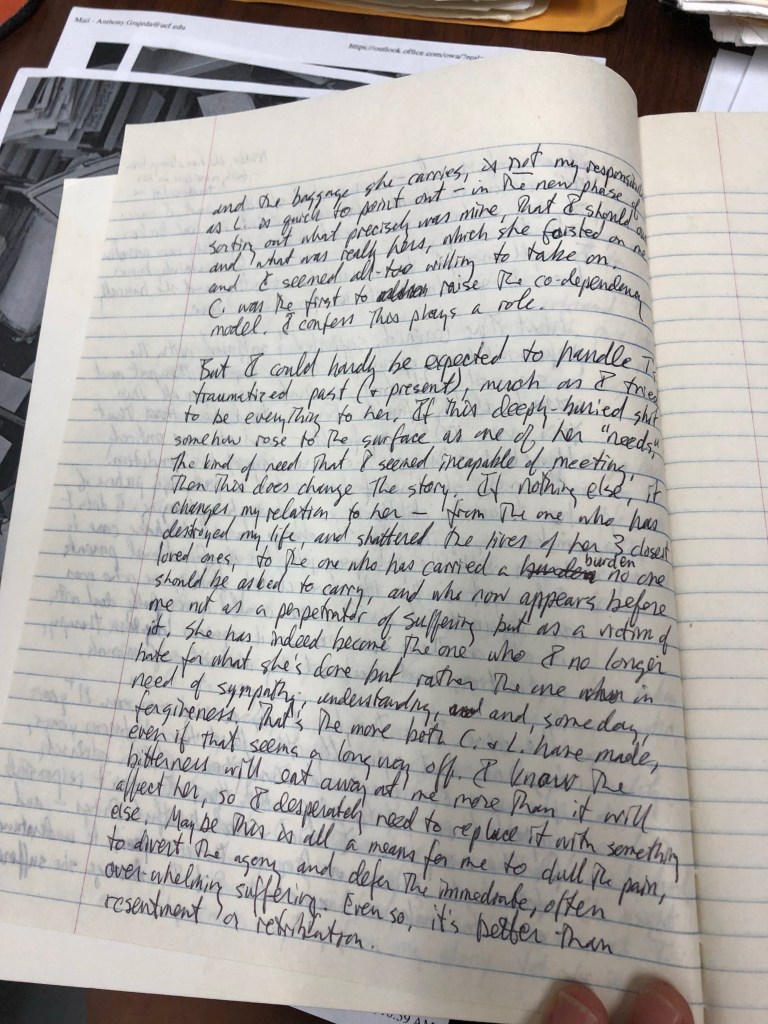 Mail - Anthony Grajeda@ucf.edu
https://outlook.office.com/owa/?real
and the baggage she carries, is not my responsib
as L. is quick to point out – in the new phase of
sorting out what precisely was mine, that I should own
and what was really hers, which she foisted on me
and I seemed all-too willing to take on.
C. was the first to raise the co-dependency
model. I confess this plays a role.
But I could hardly be expected to handle T.'s
traumatized past (& present), much as I tried
to be everything to her. If this deeply-buried shit
somehow rose to the surface as one of her "needs,"
the kind of need that I seemed incapable of meeting,
then this does change the story. If nothing else, it
changes my relation to her – from the one who has
destroyed my life, and shattered the lives of her 3 closest
loved ones, to the one who has carried a burden no one
should be asked to carry, and who now appears before
me not as a perpetrator of suffering but as a victim of
it. She has indeed become the one who I no longer
hate for what she's done but rather the one in
need of sympathy, understanding, and, someday,
forgiveness. That's the move both C. & L. have made,
even if that seems a long way off. I know the
bitterness will eat away at me more than it will
affect her, so I desperately need to replace it with something
else. Maybe this is all a means for me to dull the pain,
to divert the agony and defer the immediate, often
over-whelming suffering. Even so, it's better than
resentment or retribution.
:39 AM